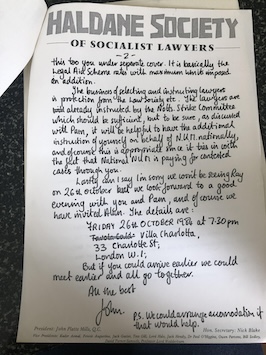 HALDANE SOCIETY
OF SOCIALIST LAWYERS
- 2 -
this too you under separate cover. It is basically the
Legal Aid Scheme rules will maximum words imposed
in addition.
The business of selecting and instructing lawyers
is protection from the Law Society etc. The lawyers are
well already instructed by the Notts Strike Committee
which should be sufficient, but to be sure, as discussed
with Pam, it will be helpful to have the additional
instruction of yourself on behalf of N.U.M. nationally,
and of course this is appropriate since it ties in with
the fact that National N.U.M. is paying for contested
cases through you.
Lastly can I say I'm sorry we won't be seeing Ray
on 26th October but we look forward to a good
evening with you and Pam, and of course we
have invited Allan. The details are:
FRIDAY 26th OCTOBER 1984 at 7.30pm
Villa Charlotta,
33 Charlotte St,
London W.1.
But if you could arrive earlier we could
meet earlier and all go together.
All the best
John
P.S. We could arrange accomodation if
that would help.
President: John Platts Mills, Q.C.
Hon. Secretary: Nick Blake